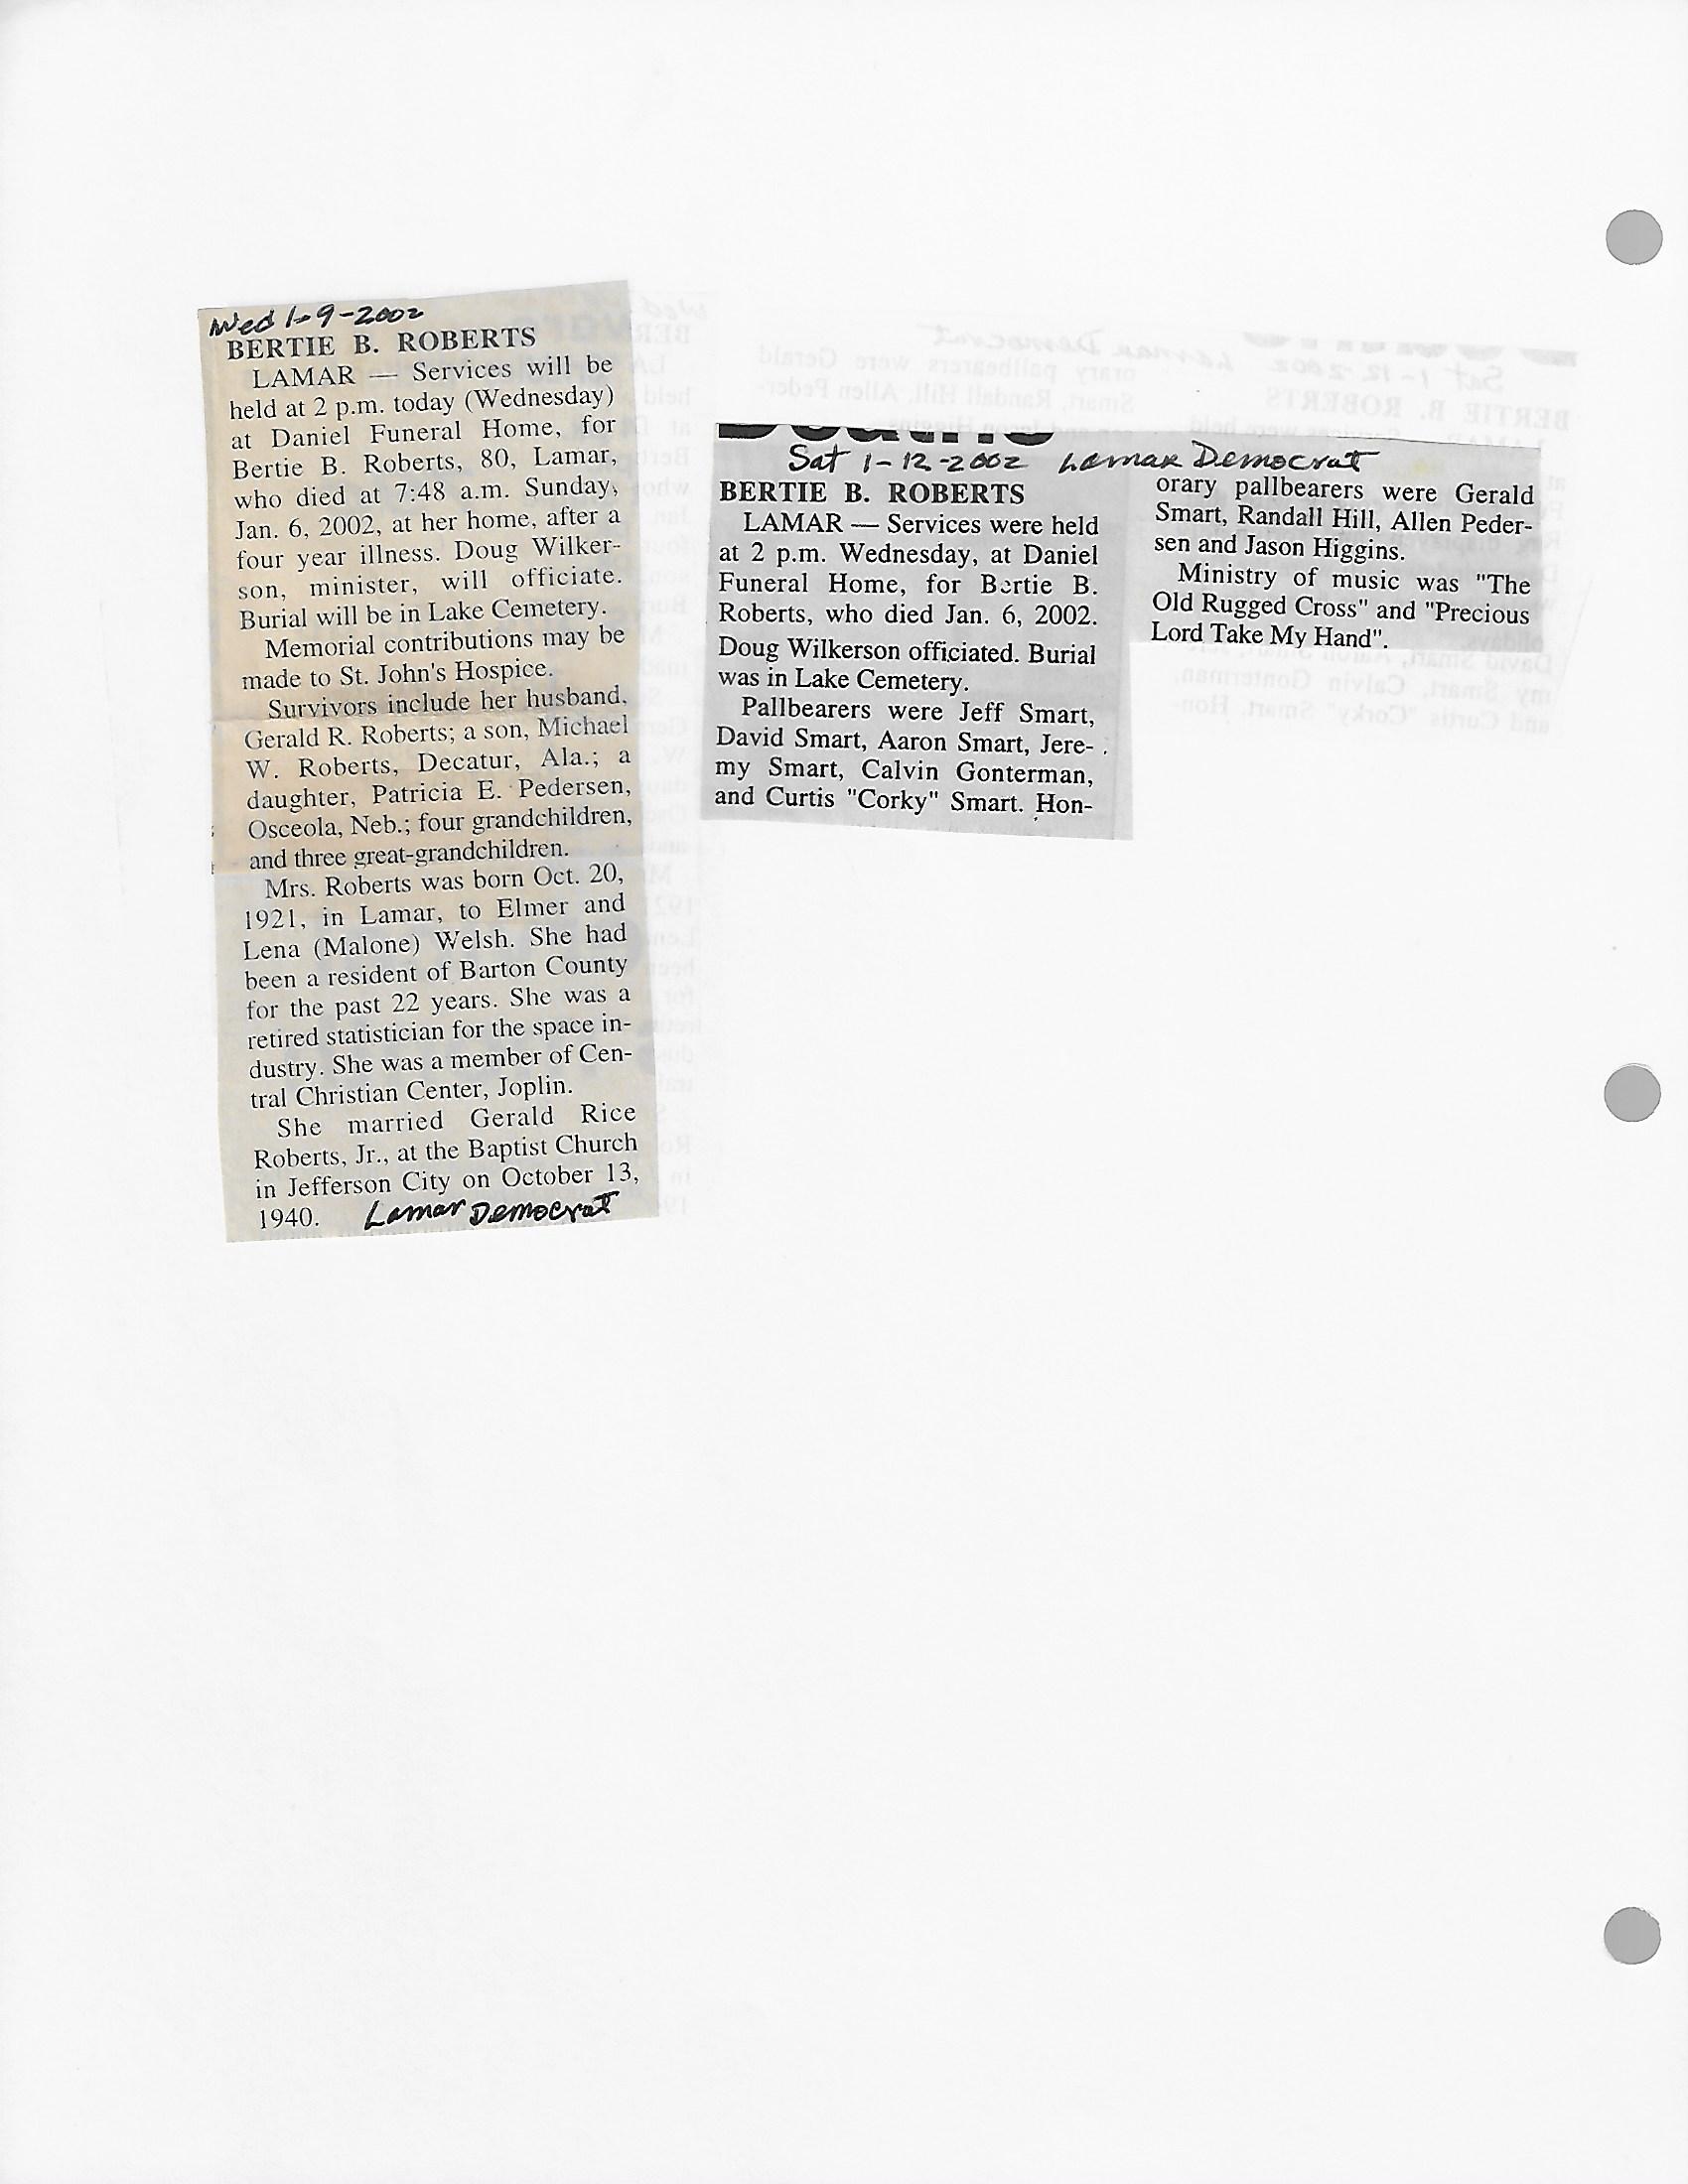 Wed 1-9-2002
BERTIE B. ROBERTS
LAMAR — Services will be
held at 2 p.m. today (Wednesday)
at Daniel Funeral Home, for
Bertie B. Roberts, 80, Lamar,
who died at 7:48 a.m. Sunday,
Jan. 6, 2002, at her home, after a
four year illness. Doug Wilker-
son, minister, will officiate.
Burial will be in Lake Cemetery.
Memorial contributions may be
made to St. John's Hospice.
Survivors include her husband,
Gerald R. Roberts; a son, Michael
W. Roberts, Decatur, Ala.; a
daughter, Patricia E. Pedersen,
Osceola, Neb.; four grandchildren,
and three great-grandchildren.
Mrs. Roberts was born Oct. 20,
1921, in Lamar, to Elmer and
Lena (Malone) Welsh. She had
been a resident of Barton County
for the past 22 years. She was a
retired statistician for the space in-
dustry. She was a member of Cen-
tral Christian Center, Joplin.
She married Gerald Rice
Roberts, Jr., at the Baptist Church
in Jefferson City on October 13,
1940. Lamar Democrat
Sat 1-12-2002 Lamar Democrat
BERTIE B. ROBERTS
LAMAR — Services were held
at 2 p.m. Wednesday, at Daniel
Funeral Home, for Bertie B.
Roberts, who died Jan. 6, 2002.
Doug Wilkerson officiated. Burial
was in Lake Cemetery.
Pallbearers were Jeff Smart,
David Smart, Aaron Smart, Jere-
my Smart, Calvin Gonterman,
and Curtis "Corky" Smart. Hon-
orary pallbearers were Gerald
Smart, Randall Hill, Allen Peder-
sen and Jason Higgins.
Ministry of music was "The
Old Rugged Cross" and "Precious
Lord Take My Hand".